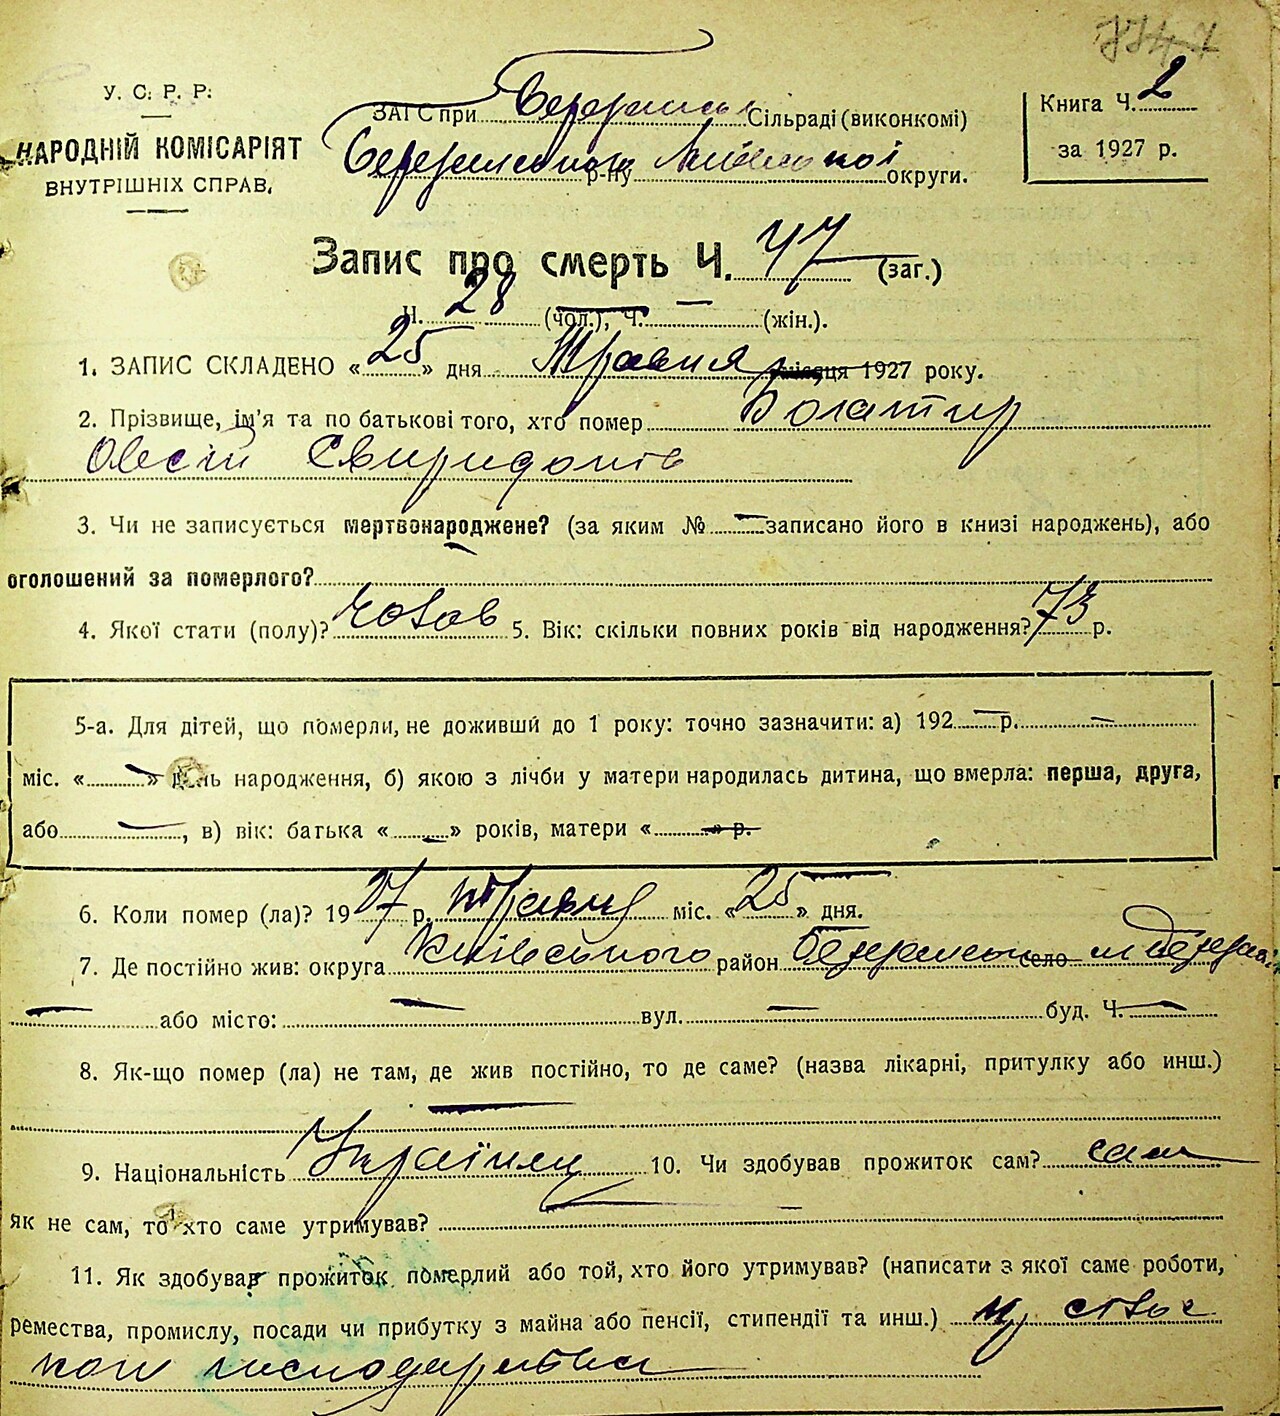 У. С. Р. Р.
НАРОДНІЙ КОМІСАРІЯТ
ВНУТРІШНІХ СПРАВ.
ЗАГС при Сільраді (виконкомі)
р-ну округи.
Книга Ч. 2
за 1927 р.
Запис про смерть Ч. 47 (заг.)
Ч. 28 (чол.), Ч. — (жін.).
1. ЗАПИС СКЛАДЕНО « 25 » дня Травня місяця 1927 року.
2. Прізвище, ім'я та по батькові того, хто помер Богатир
Овсій Свиридонів
3. Чи не записується мертвонароджене? (за яким № — записано його в книзі народжень), або
оголошений за померлого?
4. Якої стати (полу)? чолов 5. Вік: скільки повних років від народження? 73 р.
5-а. Для дітей, що померли, не доживши до 1 року: точно зазначити: а) 192 — р. —
міс. « — » день народження, б) якою з лічби у матери народилась дитина, що вмерла: перша, друга,
або — , в) вік: батька « — » років, матери « — » р.
6. Коли помер (ла)? 19 27 р. травня міс. « 25 » дня.
7. Де постійно жив: округа Київського район село
— або місто: — вул. — буд. Ч. —
8. Як-що помер (ла) не там, де жив постійно, то де саме? (назва лікарні, притулку або инш.)
—
9. Національність Українец 10. Чи здобував прожиток сам? сам
Як не сам, то хто саме утримував? —
11. Як здобував прожиток померлий або той, хто його утримував? (написати з якої саме роботи,
ремества, промислу, посади чи прибутку з майна або пенсії, стипендії та инш.)
господарства